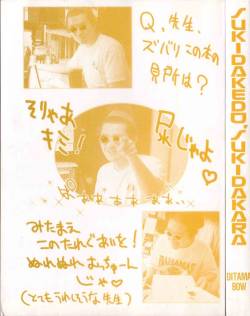 Q、先生、
ズバリこの本の
見所は?
そりゃあ
キミ!
尻じゃよ♡
みたまえ
このたれぐあいを!
ぬれぬれ むっちゅーん
じゃ♡
(とてもうれしそうな先生)
SUKIDAKEDO SUKIDAKARA
DITAMA
BOW
BAHAMAS